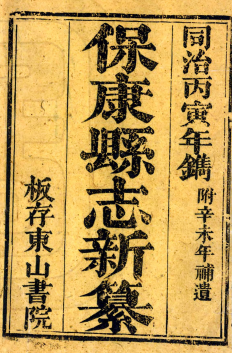 同治丙寅年鐫 附辛未年補遺
保康縣志新纂
板存東山書院